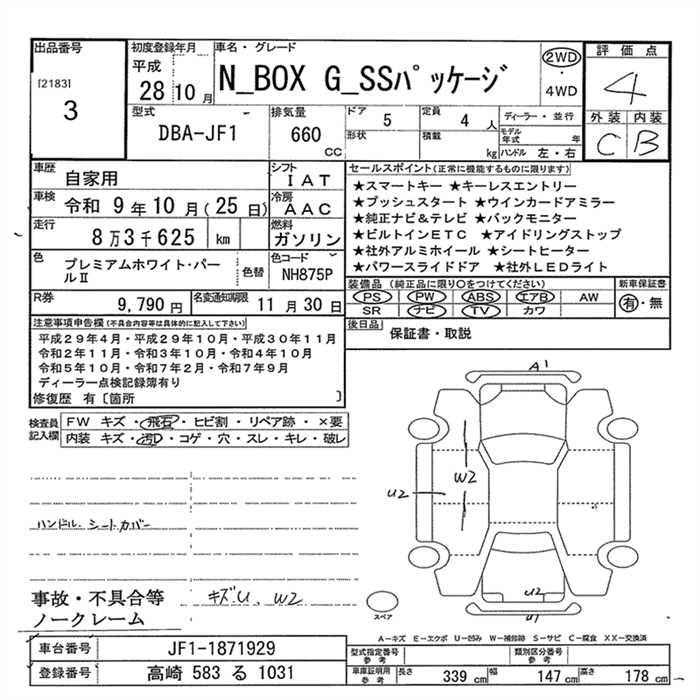 出品番号
[2183]
3
初度登録年月
平成
28 10 月
車名・グレード
N_BOX G_SSパッケージ
2WD
・
4WD
評価点
4
外装 内装
C B
型式
DBA-JF1
排気量
660
CC
ドア
5
定員
4 人
形状
積載
kg
ディーラー・並行
モデル年式 年
ハンドル 左・右
車歴
自家用
シフト
IAT
車検
令和 9年 10月(25日)
冷房
AAC
走行
8万3千625 km
燃料
ガソリン
色
プレミアムホワイト・パールⅡ
色替
色コード
NH875P
R券
9,790 円
名変通知期限
11月30日
セールスポイント(正常に機能するものに限ります)
★スマートキー ★キーレスエントリー
★プッシュスタート ★ウインカードアミラー
★純正ナビ&テレビ ★バックモニター
★ビルトインETC ★アイドリングストップ
★社外アルミホイール ★シートヒーター
★パワースライドドア ★社外LEDライト
装備品(純正品に限り○をつけてください)
PS PW ABS エアB AW
SR ナビ TV カワ
新車保証書
有・無
後日品
保証書・取説
注意事項申告欄(不具合内容等は具体的に記入して下さい)
平成29年4月・平成29年10月・平成30年11月
令和2年11月・令和3年10月・令和4年10月
令和5年10月・令和7年2月・令和7年9月
ディーラー点検記録簿有り
修復歴 有〔箇所 〕
検査員記入欄
FW キズ・飛石・ヒビ割・リペア跡・×要
内装 キズ・汚D・コゲ・穴・スレ・キレ・破レ
ハンドル、シートカバー
事故・不具合等
ノークレーム
キズU、W2
A1
U2
W2
U2
U1
スペア
A－キズ E－エクボ U－凹み W－補修跡 S－サビ C－腐食 XX－交換済
車台番号
JF1-1871929
登録番号
高崎 583 る 1031
型式指定番号
参考
類別区分番号
参考
車庫証明用
参考
長さ
339 cm
幅
147 cm
高さ
178 cm